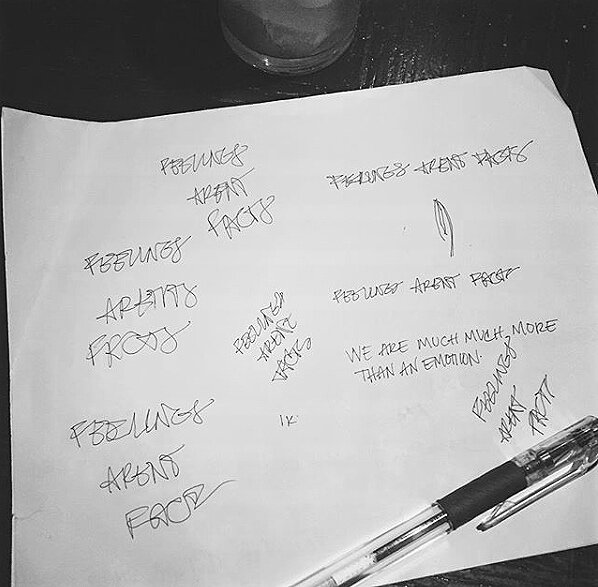 FEELINGS
ARENT
FACTS
FEELINGS ARENT FACTS
FEELINGS
ARENTS
FACTS
FEELINGS
ARENT
FACTS
FEELINGS ARENT FACT
WE ARE MUCH MUCH MORE
THAN AN EMOTION.
FEELINGS
ARENT
FACT
FEELINGS
ARENT
FACT